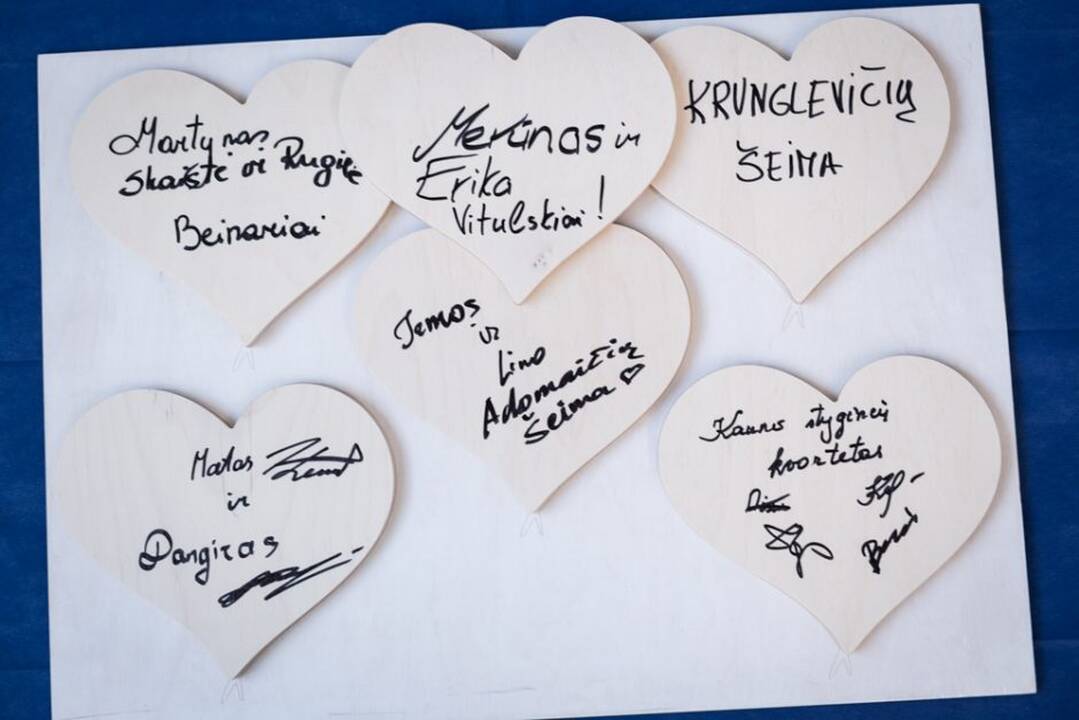 Martynas
Skaistė ir Rugilė
Beinariai
Merūnas ir
Erika
Vitulskiai!
KRUNGLEVIČIŲ
ŠEIMA
ir
Lino
Adomaičių
Šeima ♡
Matas
ir
Dangiras
Kauno styginių
kvartetas